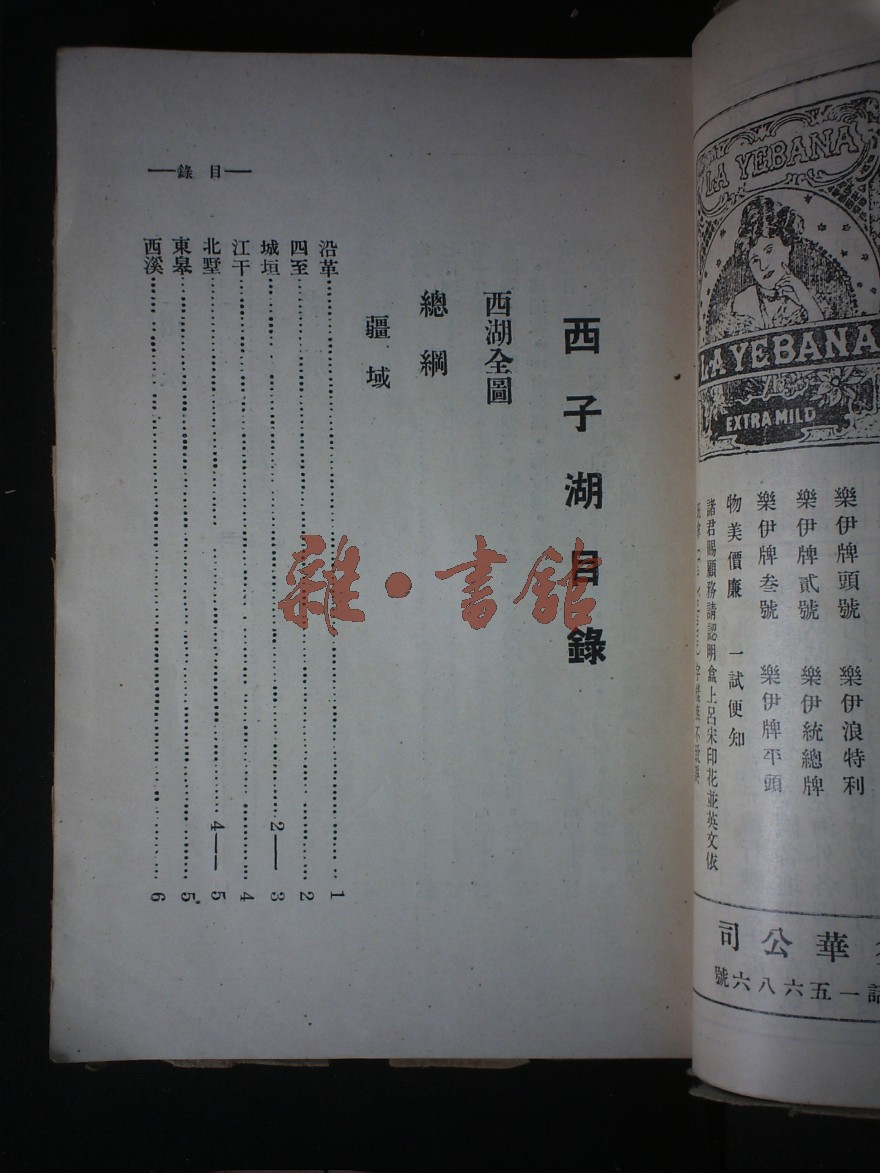 LA YEBANA
LA YEBANA
EXTRA MILD
樂伊牌頭號 樂伊浪特利
樂伊牌貳號 樂伊統總牌
樂伊牌叁號 樂伊牌平頭
物美價廉 一試便知
諸君賜顧務請認明盒上呂宋印花並英文依
華公司
一五六八六號
西子湖目錄
西湖全圖
總綱
疆域
沿革 1
四至 2
城垣 2—3
江干 4
北墅 4—5
東皋 5
西溪 6
—目錄—
雜·書館